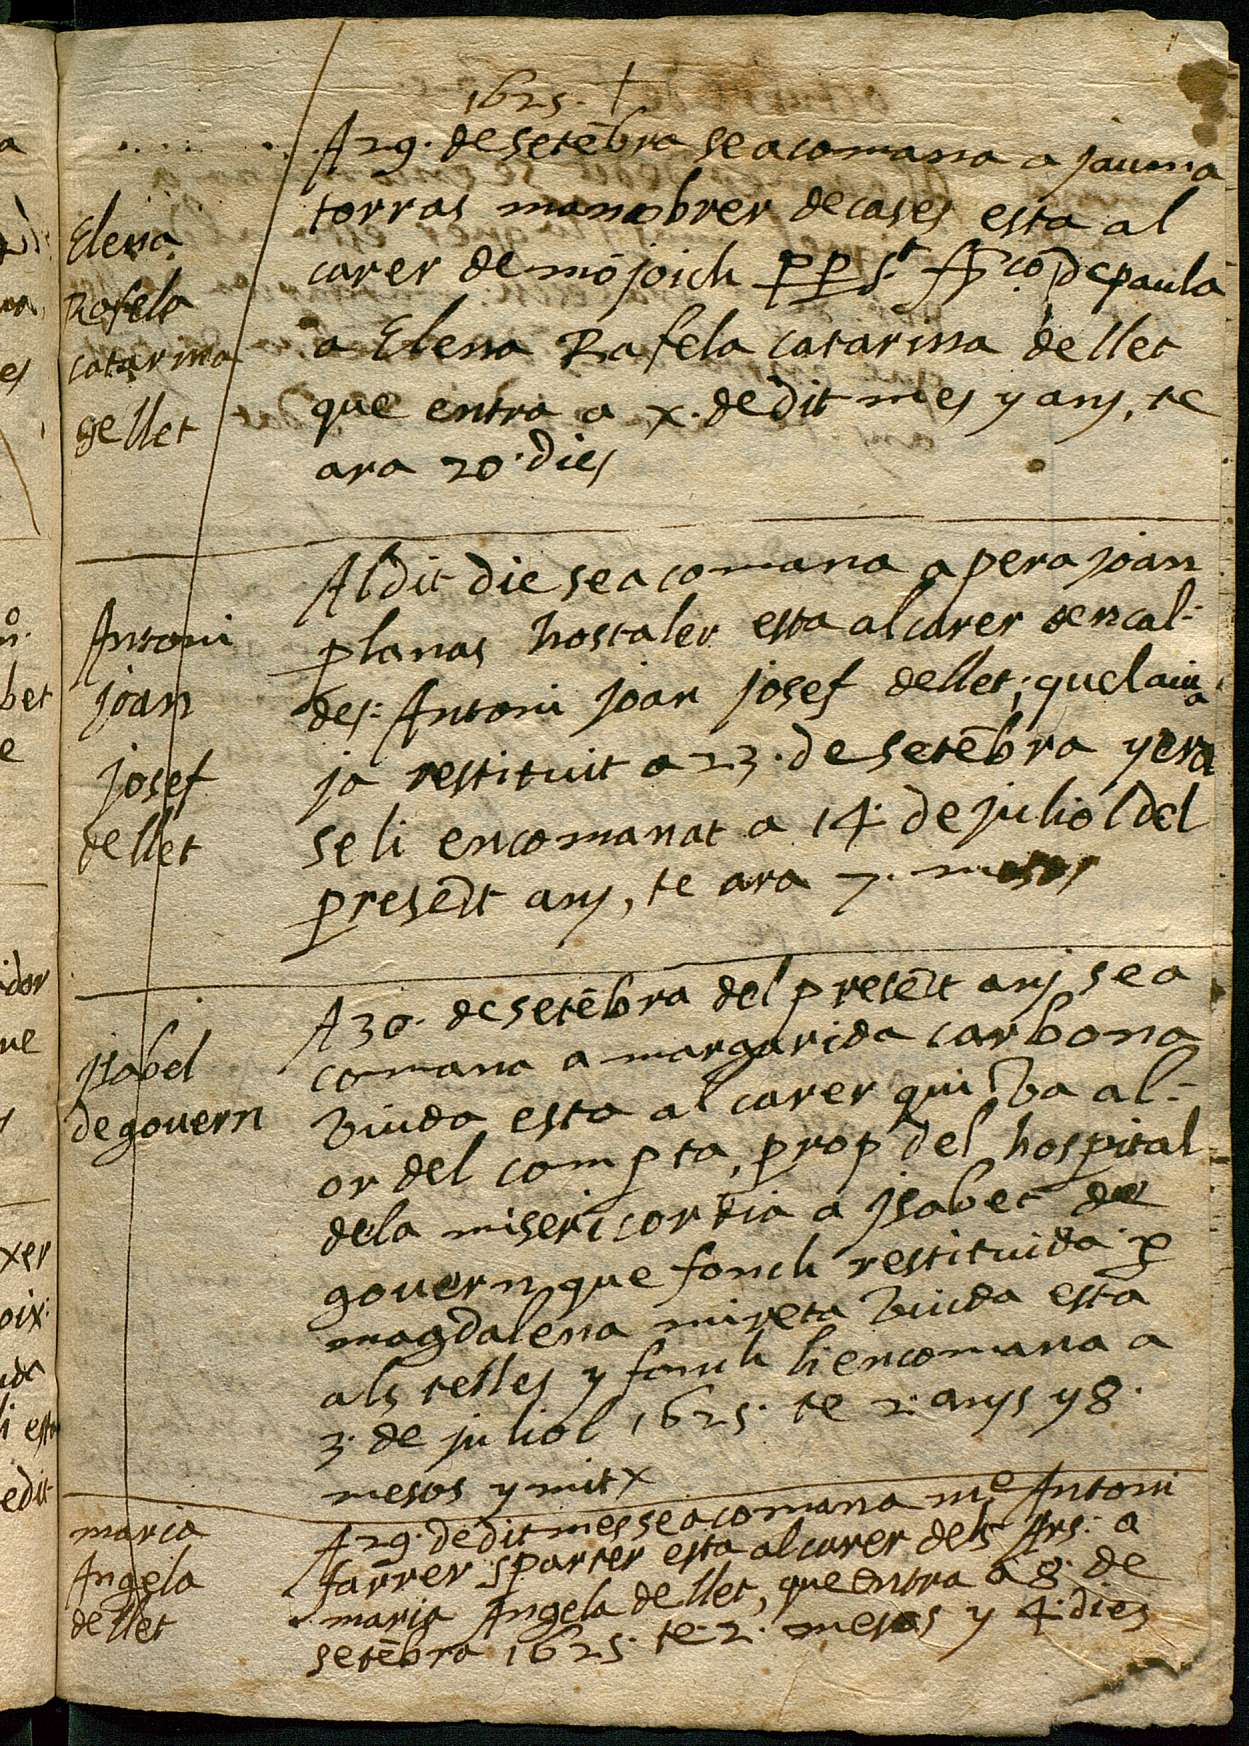 1625. †
A 29. de setēbra se acomana a jauma
torras manobrer de cases esta al
carer de mōjoich pp st fr̄co de paula
a Elena Rafela catarina de llet
que entra a x. de dit mes y any, te
ara 20. dies
Elena
Rafela
catarina
de llet
Al dit die se acomana a pera joan
planas hostaler esta al carer den cal-
des: Antoni joan josef de llet; que lauia
ja restituit a 23. de setēbra y era
se li encomanat a 14. de juliol del
presēt any, te ara 7. mesos
Antoni
joan
josef
de llet
A 30. de setēbra del presēt any se a
comana a margarida carbona
viuda esta al carer qui va al-
or del compta, prop del hospital
de la misericordia a jsabet de
govern que fonch restituida p
magdalena mireta viuda esta
als telles y fonch li encomana a
3. de juliol 1625. te 2. anys y 8.
mesos y mitx
jsabel
de govern
A 29. de dit mes se acomana me Antoni
farrer sparter esta al carer dels Ars: a
maria Angela de llet, que entra a 8. de
setēbra 1625. te. 2. mesos y 4. dies
maria
Angela
de llet